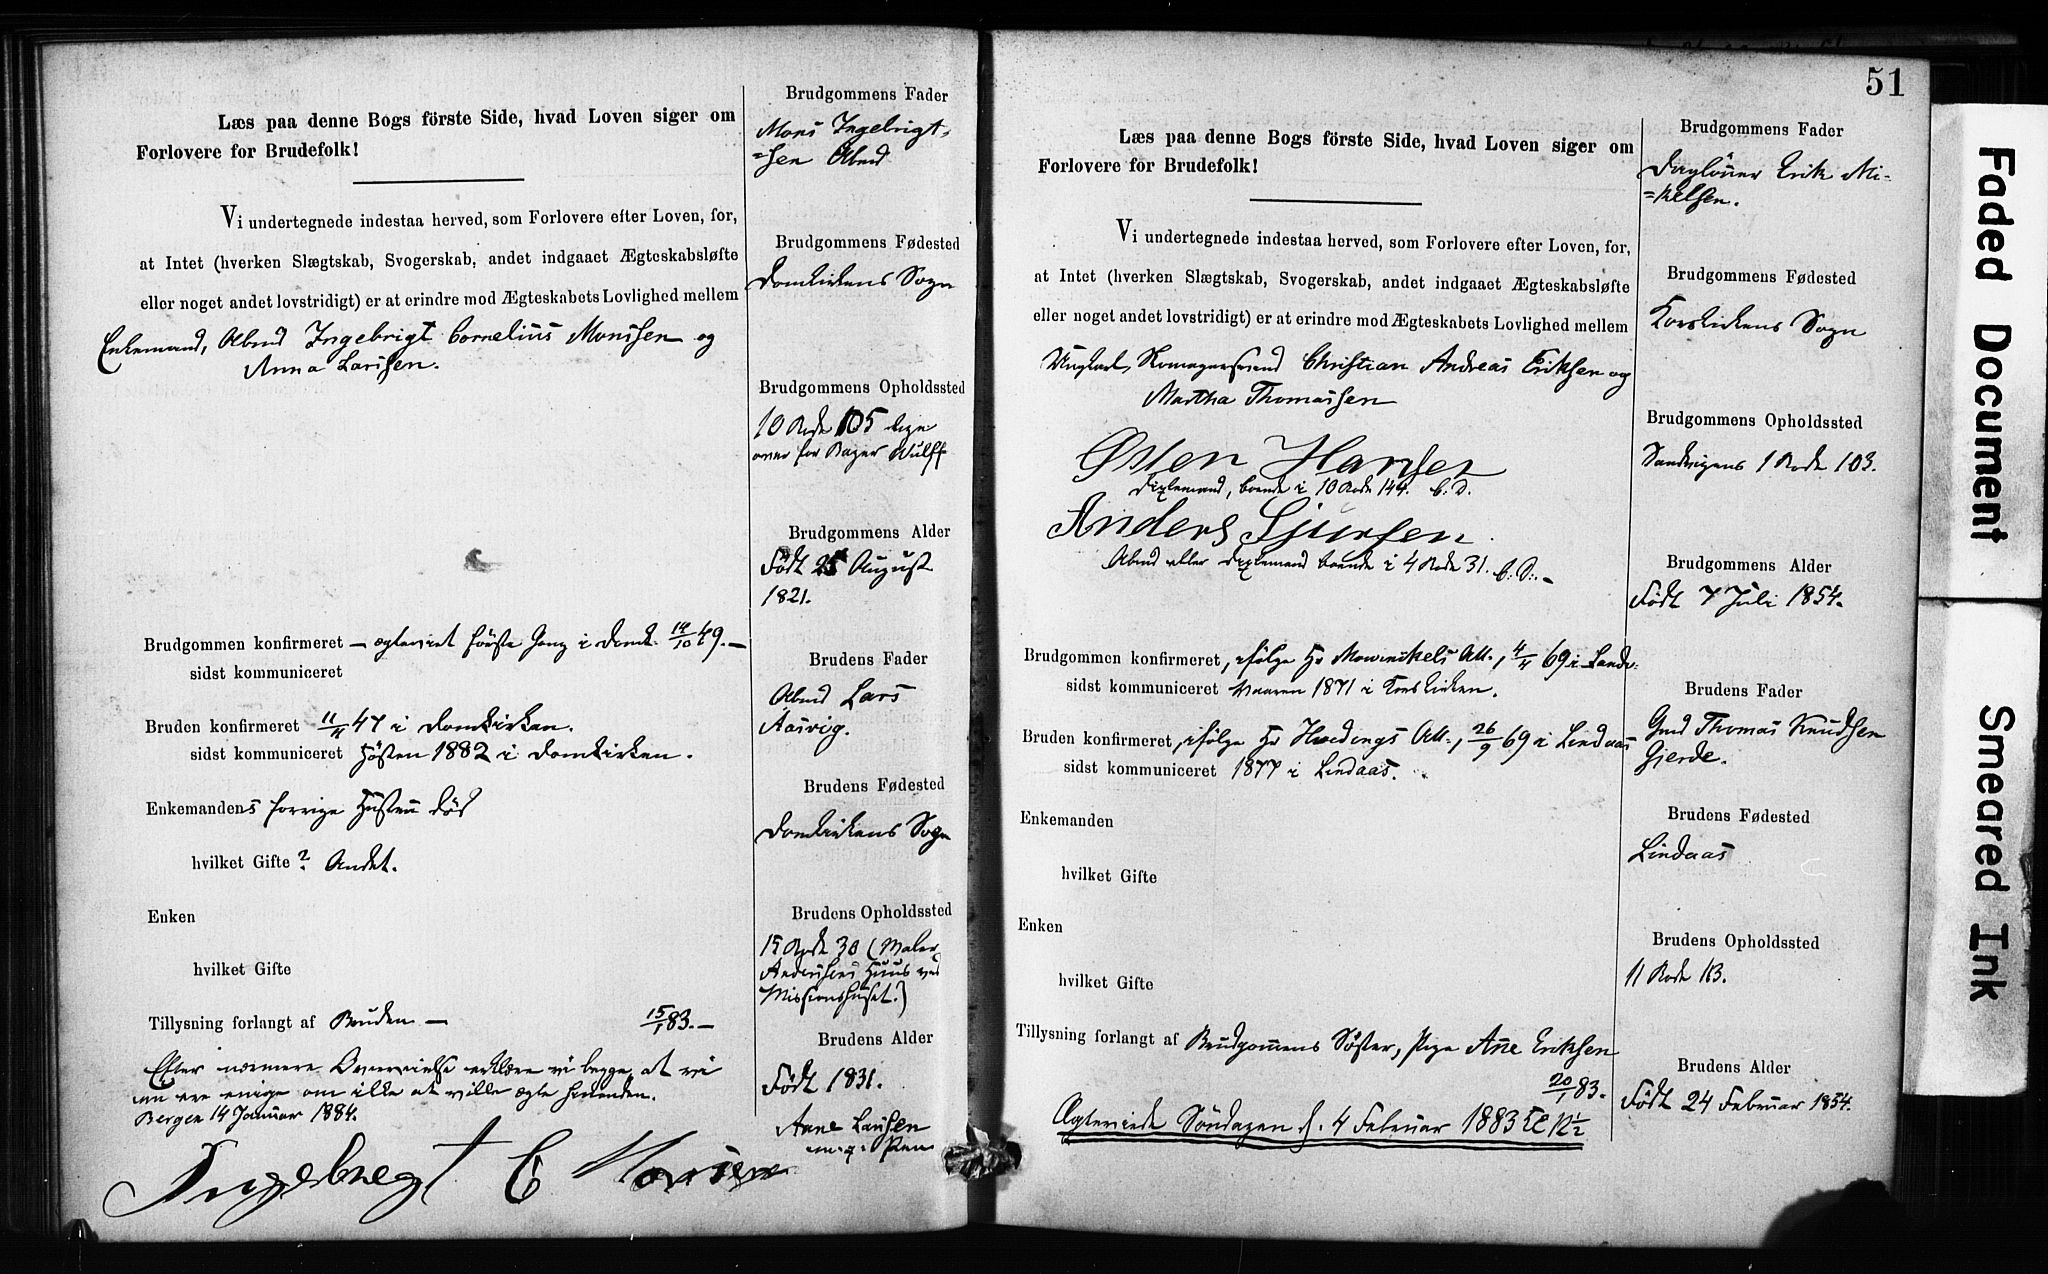 Læs paa denne Bogs förste Side, hvad Loven siger om
Forlovere for Brudefolk!
Vi undertegnede indestaa herved, som Forlovere efter Loven, for,
at Intet (hverken Slægtskab, Svogerskab, andet indgaaet Ægteskabsløfte
eller noget andet lovstridigt) er at erindre mod Ægteskabets Lovlighed mellem
Enkemand, Abmd Ingebrigt Cornelius Monssen og
Anna Larssen.
Brudgommen konfirmeret – ægteviet første Gang i Domk. 14/10 49. –
sidst kommuniceret
Bruden konfirmeret 11/4 47 i Domkirken.
sidst kommuniceret Høsten 1882 i Domkirken.
Enkemandens forrige Hustru død
hvilket Gifte? Andet.
Enken
hvilket Gifte
Tillysning forlangt af Bruden – 15/1 83. –
Efter nærmere Overveielse erklære vi begge, at vi
nu ere enige om ikke at ville ægte hinanden.
Bergen 14 Januar 1884.
Ingebregt C Monsen
Brudgommens Fader
Mons Ingebrigt-
=sen Abmd
Brudgommens Fødested
Domkirkens Sogn
Brudgommens Opholdssted
10 Rode 105 lige
over for Bager Wulff
Brudgommens Alder
Født 25 August
1821.
Brudens Fader
Abmd Lars
Aasvig.
Brudens Fødested
Domkirkens Sogn
Brudens Opholdssted
15 Rode 30 (Maler
Anderssens Huus ved
Missionshuset.)
Brudens Alder
Født 1831.
Anne Larssen
m. p. Pen
51
Læs paa denne Bogs förste Side, hvad Loven siger om
Forlovere for Brudefolk!
Vi undertegnede indestaa herved, som Forlovere efter Loven, for,
at Intet (hverken Slægtskab, Svogerskab, andet indgaaet Ægteskabsløfte
eller noget andet lovstridigt) er at erindre mod Ægteskabets Lovlighed mellem
Ungkarl, Christian Andreas Eriksen og
Martha Thomassen
Østen Hansen
Dixlemand, boende i 10 Rode 144. C. D.
Anders Sjursen
Abmd eller Dixlemand boende i 4 Rode 31. C. D. –
Brudgommen konfirmeret, ifølge Hr Mowinckels Att., 4/4 69 i Lande
sidst kommuniceret Vaaren 1871 i Korskirken.
Bruden konfirmeret, ifølge Hr Hvedings Att., 26/9 69 i Lindaas
sidst kommuniceret 1877 i Lindaas.
Enkemanden
hvilket Gifte
Enken
hvilket Gifte
Tillysning forlangt af Brudgommens Søster, Pige Ane Eriksen
20/1 83.
Ægteviede Søndagen d. 4 Februar 1883 Kl 12 1/2
Brudgommens Fader
Dagløner Erik Mi-
=kelsen.
Brudgommens Fødested
Korskirkens Sogn
Brudgommens Opholdssted
Sandvigens 1 Rode 103.
Brudgommens Alder
Født 7 Juli 1854.
Brudens Fader
Gmd Thomas Knudsen
Gjerde.
Brudens Fødested
Lindaas
Brudens Opholdssted
11 Rode 113.
Brudens Alder
Født 24 Februar 1854.
Faded Document
Smeared Ink